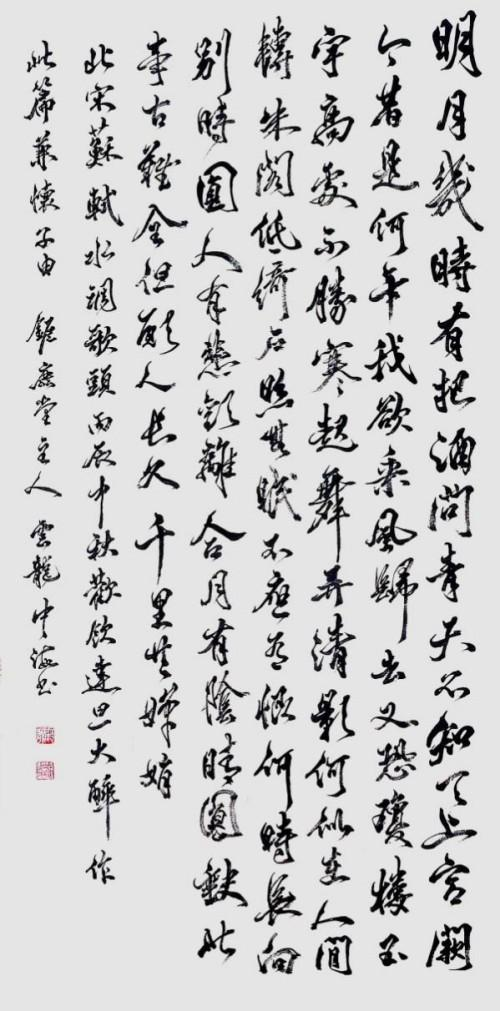 明月幾時有把酒問青天不知天上宮闕
今昔是何年我欲乘風歸去又恐瓊樓玉
宇高處不勝寒起舞弄清影何似在人間
轉朱閣低綺戶照無眠不應有恨何時長向
別時圓人有悲歡離合月有陰晴圓缺此
事古難全但願人長久千里共嬋娟
此宋蘇軾水調歌頭丙辰中秋歡飲達旦大醉作
此篇兼懷子由 鏡鹿堂主人 雲龍 書